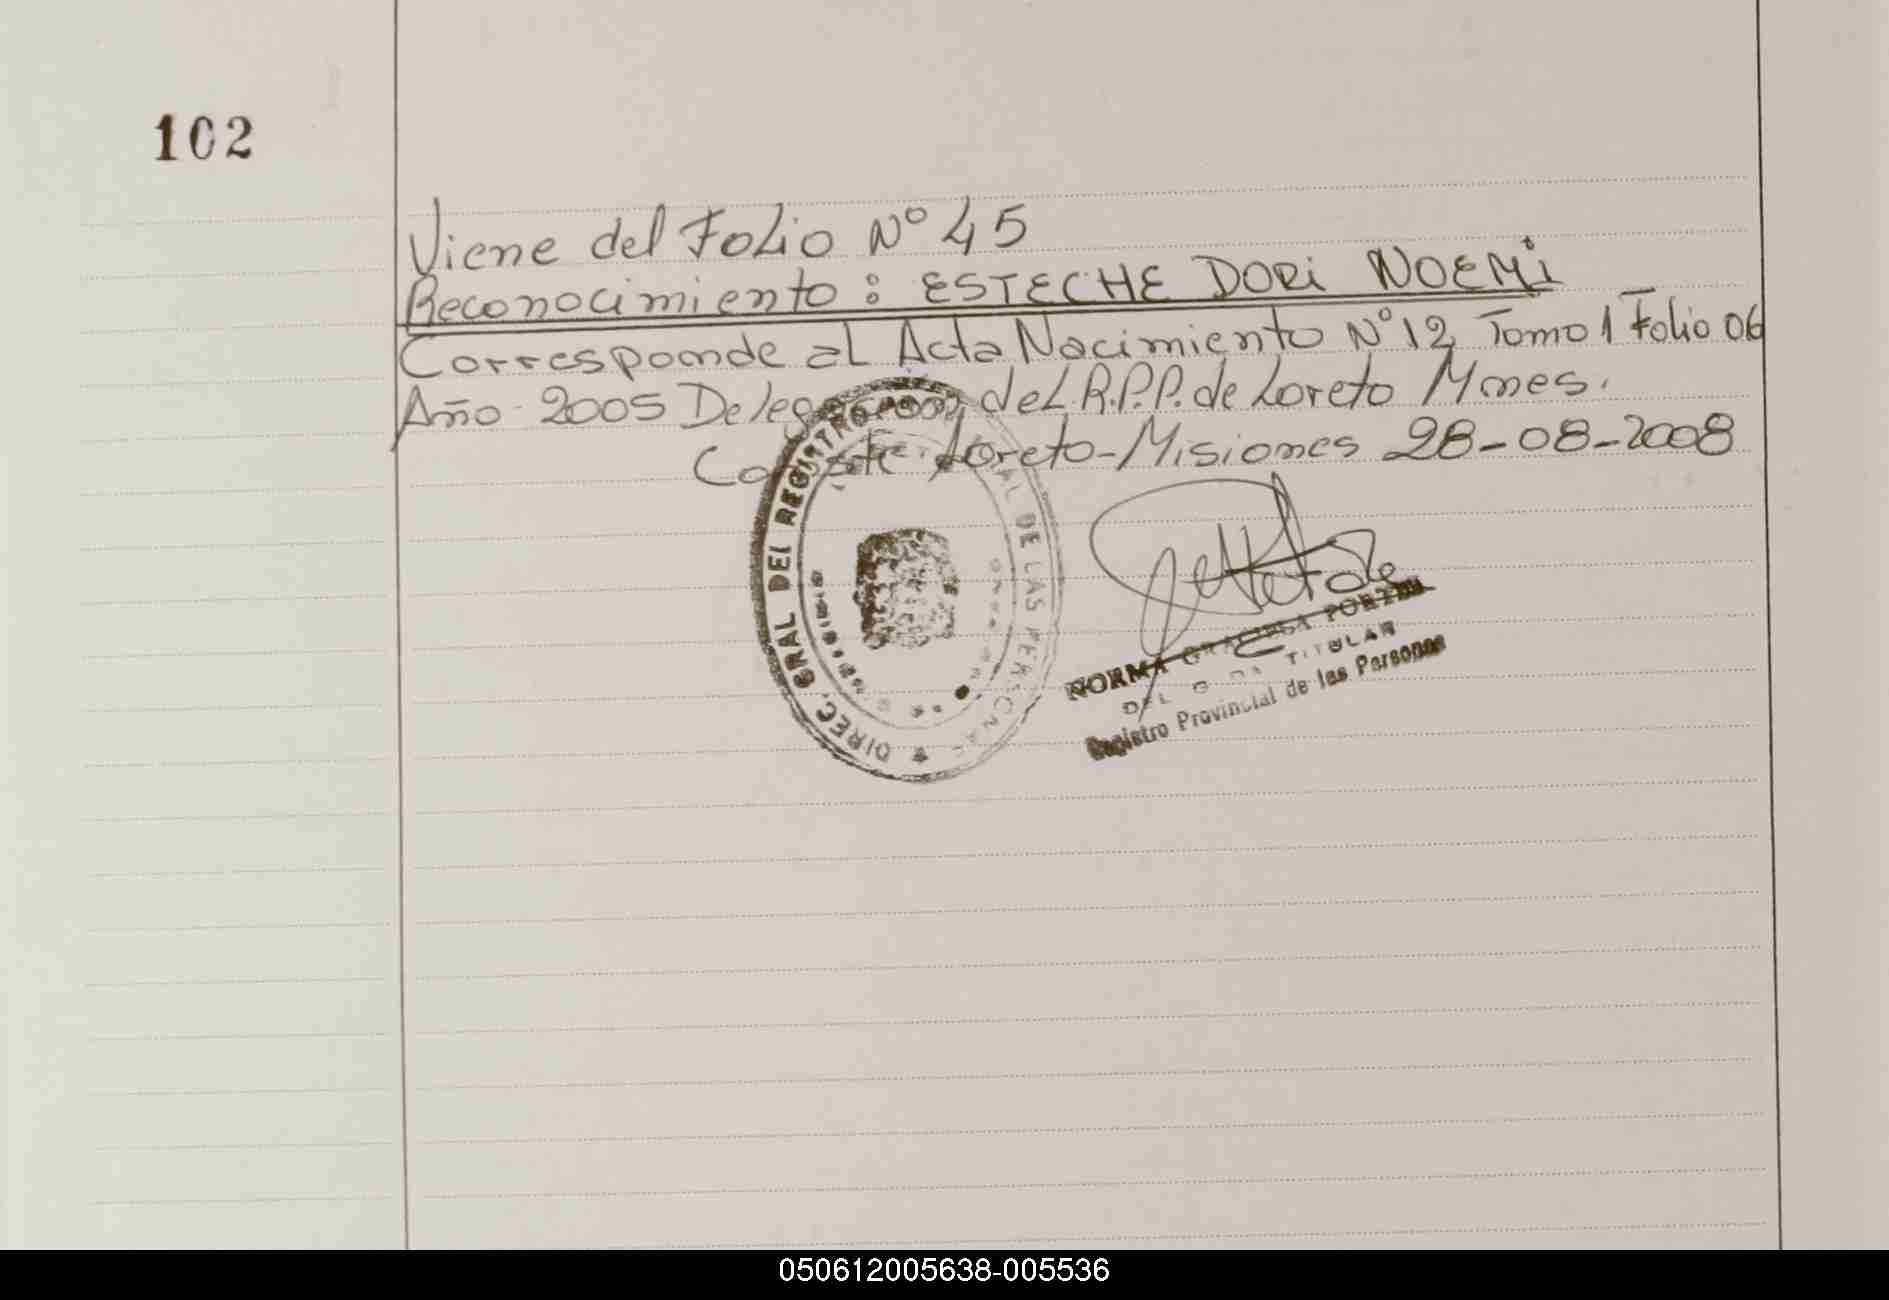 102
Viene del Folio Nº 45
Reconocimiento: ESTECHE DORI NOEMI
Corresponde al Acta Nacimiento Nº 12 Tomo 1 Folio 06
Año 2005 del R.P.P. de Loreto Mnes.
Loreto-Misiones 28-08-2008
DIREC. GRAL DEL REGISTRO PROVINCIAL DE LAS PERSONAS
NORMA GRACIELA
TITULAR
Registro Provincial de las Personas
050612005638-005536